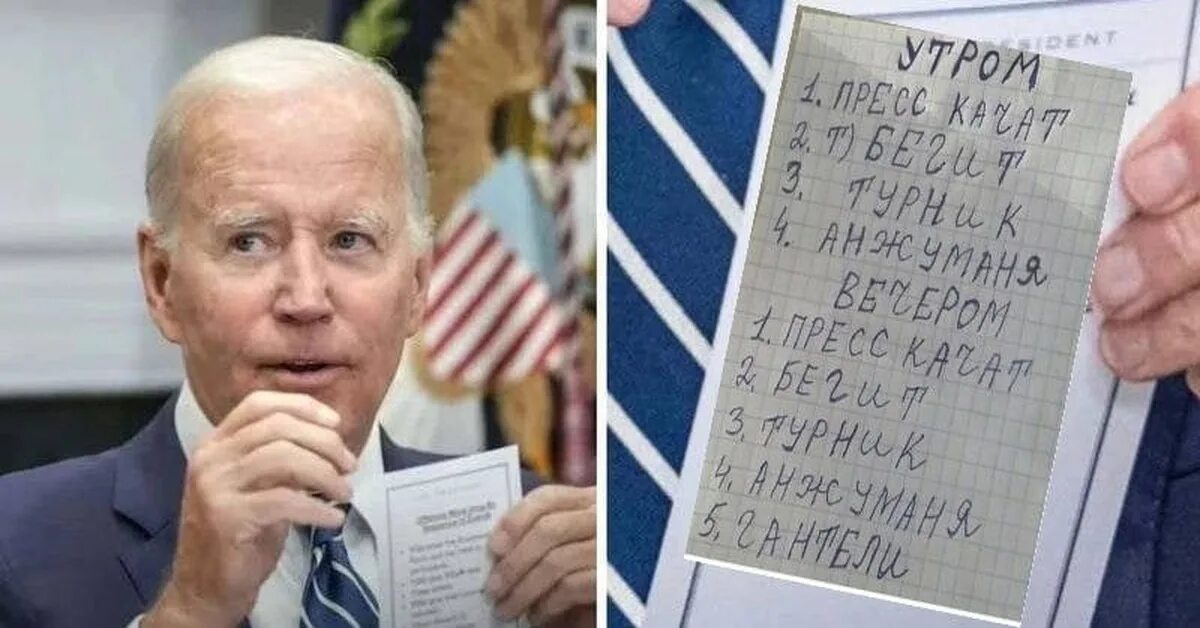 SIDENT
УТРОМ
1. ПРЕСС КАЧАТ
2. Т) БЕГИТ
3. ТУРНИК
4. АНЖУМАНЯ
ВЕЧЕРОМ
1. ПРЕСС КАЧАТ
2. БЕГИТ
3. ТУРНИК
4. АНЖУМАНЯ
5. ГАНТЕЛИ